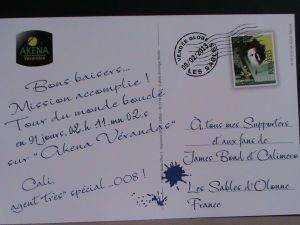 AKENA
Vérandas
VENDEE GLOBE
09.02.2013
LES SABLES
Bons baisers...
Mission accomplie !
Tour du monde bouclé
en 91 jours, 02 h 11 mn 02 s
sur "Akena Vérandas"
Cali,
agent "très" spécial _008 !
À tous mes Supporters
et aux fans de
James Bond et Calimero
Les Sables d'Olonne
France